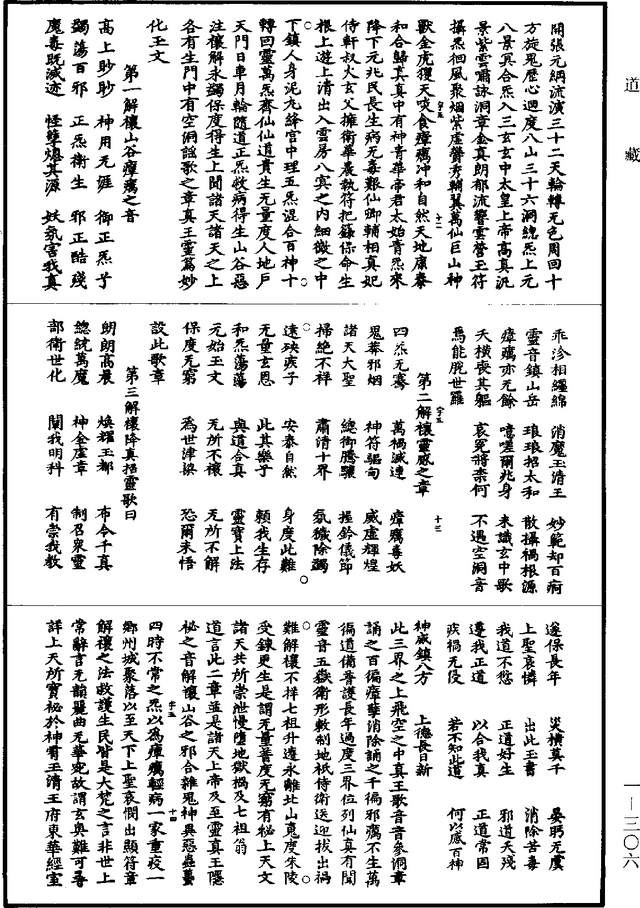 開張元綱流演三十二天輪轉无色周回十
方旋鬼歷心迴度八山三十六洞總炁上元
八景冥合炁入三玄玄中太皇上帝高真汎
景紫雲嘯詠洞章金真朗郁流響雲營玉符
攝炁徊風聚烟紫虛鬱秀輔翼萬仙巨山神
獸金虎玃天啖食瘴癘冲和自然天地康泰
和合歸真真中有神青華帝君太始青炁來
降下元兆民長生病无毒艱仙卿輔相真妃
侍軒叔火玄父擁衛華晨執符把籙保命生
根上遊上清出入雲房八冥之内細微之中
下鎮人身泥丸絳宫中理五炁混合百神十
轉回靈萬炁齊仙仙道貴生无量度人地戶
天門日車月輪隨道正炁收病得生山谷惡
注禳解永蠲保度得生上聞諸天諸天之上
各有生門中有空洞謠歌之章真王靈篇妙
化玉文
第一解禳山谷瘴癘之音
高上眇眇 神用无涯 御正炁子
蠲蕩百邪 正炁衛生 邪正酷殘
魔毒既滅迹 怪孽熄其源 妖氛害我真
乖沴相纏綿 消魔玉清王 妙範却百痾
靈音鎮山岳 琅琅招太和 散攝禍根源
瘴癘亦无餘 噫嗟爾兆身 未識玄中歌
夭橫喪其軀 哀冤將柰何 不遇空洞音
焉能脫世羅
第二解禳靈感之章
四炁元騫 萬禍滅連 瘴癘毒妖
鬼莽邪烟 神符驅甸 威虛輝煌
諸天大聖 總御騰驤 握鈴儀節
掃絶不祥 肅清十界 氛穢除蠲
遠殃疾子 安泰自然 身度此難
无量玄恩 此其樂乎 賴我生存
和炁蕩蕩 與道合真 靈寶上法
元始玉文 无所不禳 无所不解
保度无窮 爲世津梁 恐爾未悟
設此歌章
第三解禳降真招靈歌曰
朗朗高晨 煥耀玉都 布令千真
總統萬魔 神金虛章 制召衆靈
部衛世化 闡我明科 有崇我教
遂保長年 災橫莫干 晏眄无虞
上聖哀憐 出此玉書 消除苦毒
我道不愆 正道好生 邪道夭殘
遵我正道 以合我真 正道常因
疾禍无侵 若不知此道 何以感百神
神威鎮八方 上德長日新
此三界之上飛空之中真王歌音音參洞章
誦之百徧瘴孽消除誦之千徧邪癘不生萬
徧道備普護長年過度三界位列仙真有聞
靈音五嶽衛形敕制地祇侍衛送迎拔出禍
難解禳不祥七祖升遷永離北山鬼度朱陵
受鍊更生是謂无量普度无窮有秘上天文
諸天共所崇泄慢墮地獄禍及七祖翁
道言此二章並是諸天上帝及至靈真王隱
秘之音解禳山谷之邪合雜鬼神異惡蟲蠱
四時不常之炁以爲瘴癘輕病一家重疫一
鄉州城聚落以至天下上聖哀憫出顯符章
解禳之法救護生民皆是大梵之言非世上
常辭言无韻麗曲无華宛故謂玄奥難可尋
詳上天所寶秘於神霄玉清王府東華經室
道藏
一—三〇六